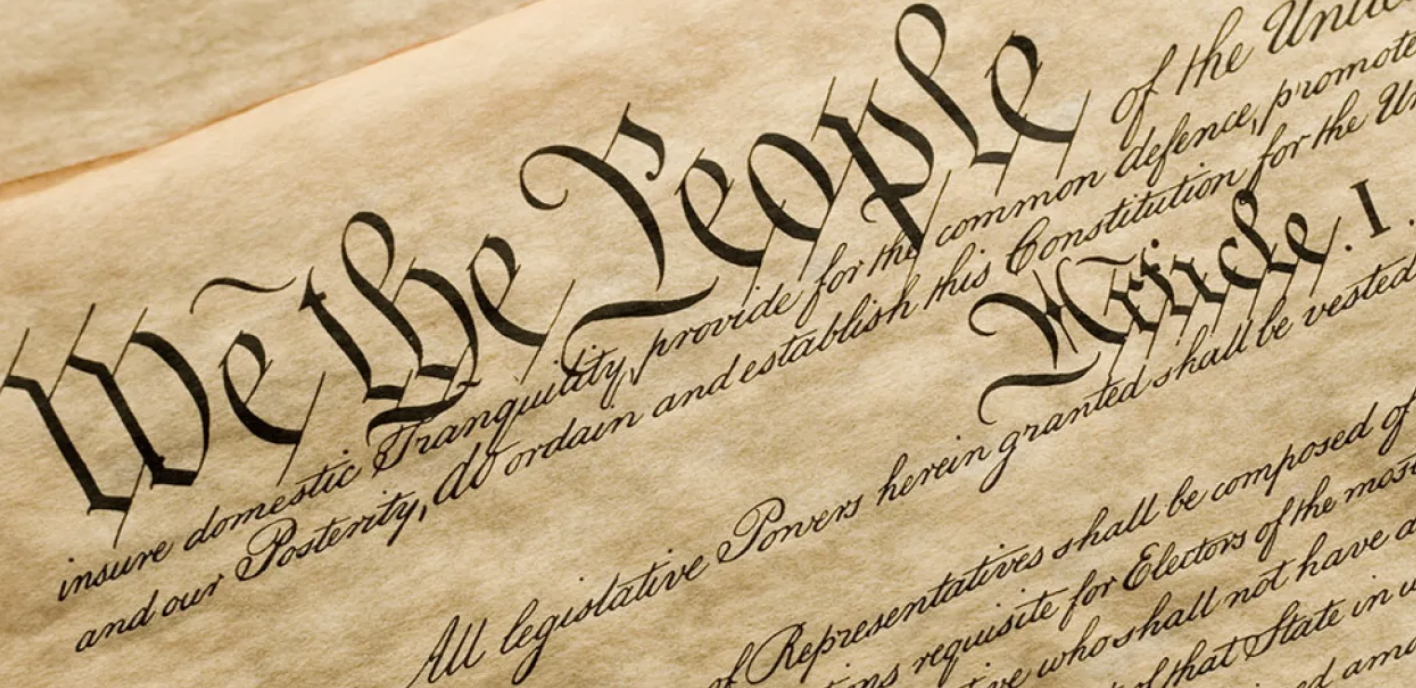 We the People of the United
insure domestic Tranquility, provide for the common defence, promote
and our Posterity, do ordain and establish this Constitution for the Un
Article. I.
All legislative Powers herein granted shall be vested
of Representatives shall be composed of
requisite for Electors of the most
who shall not have a
of that State in